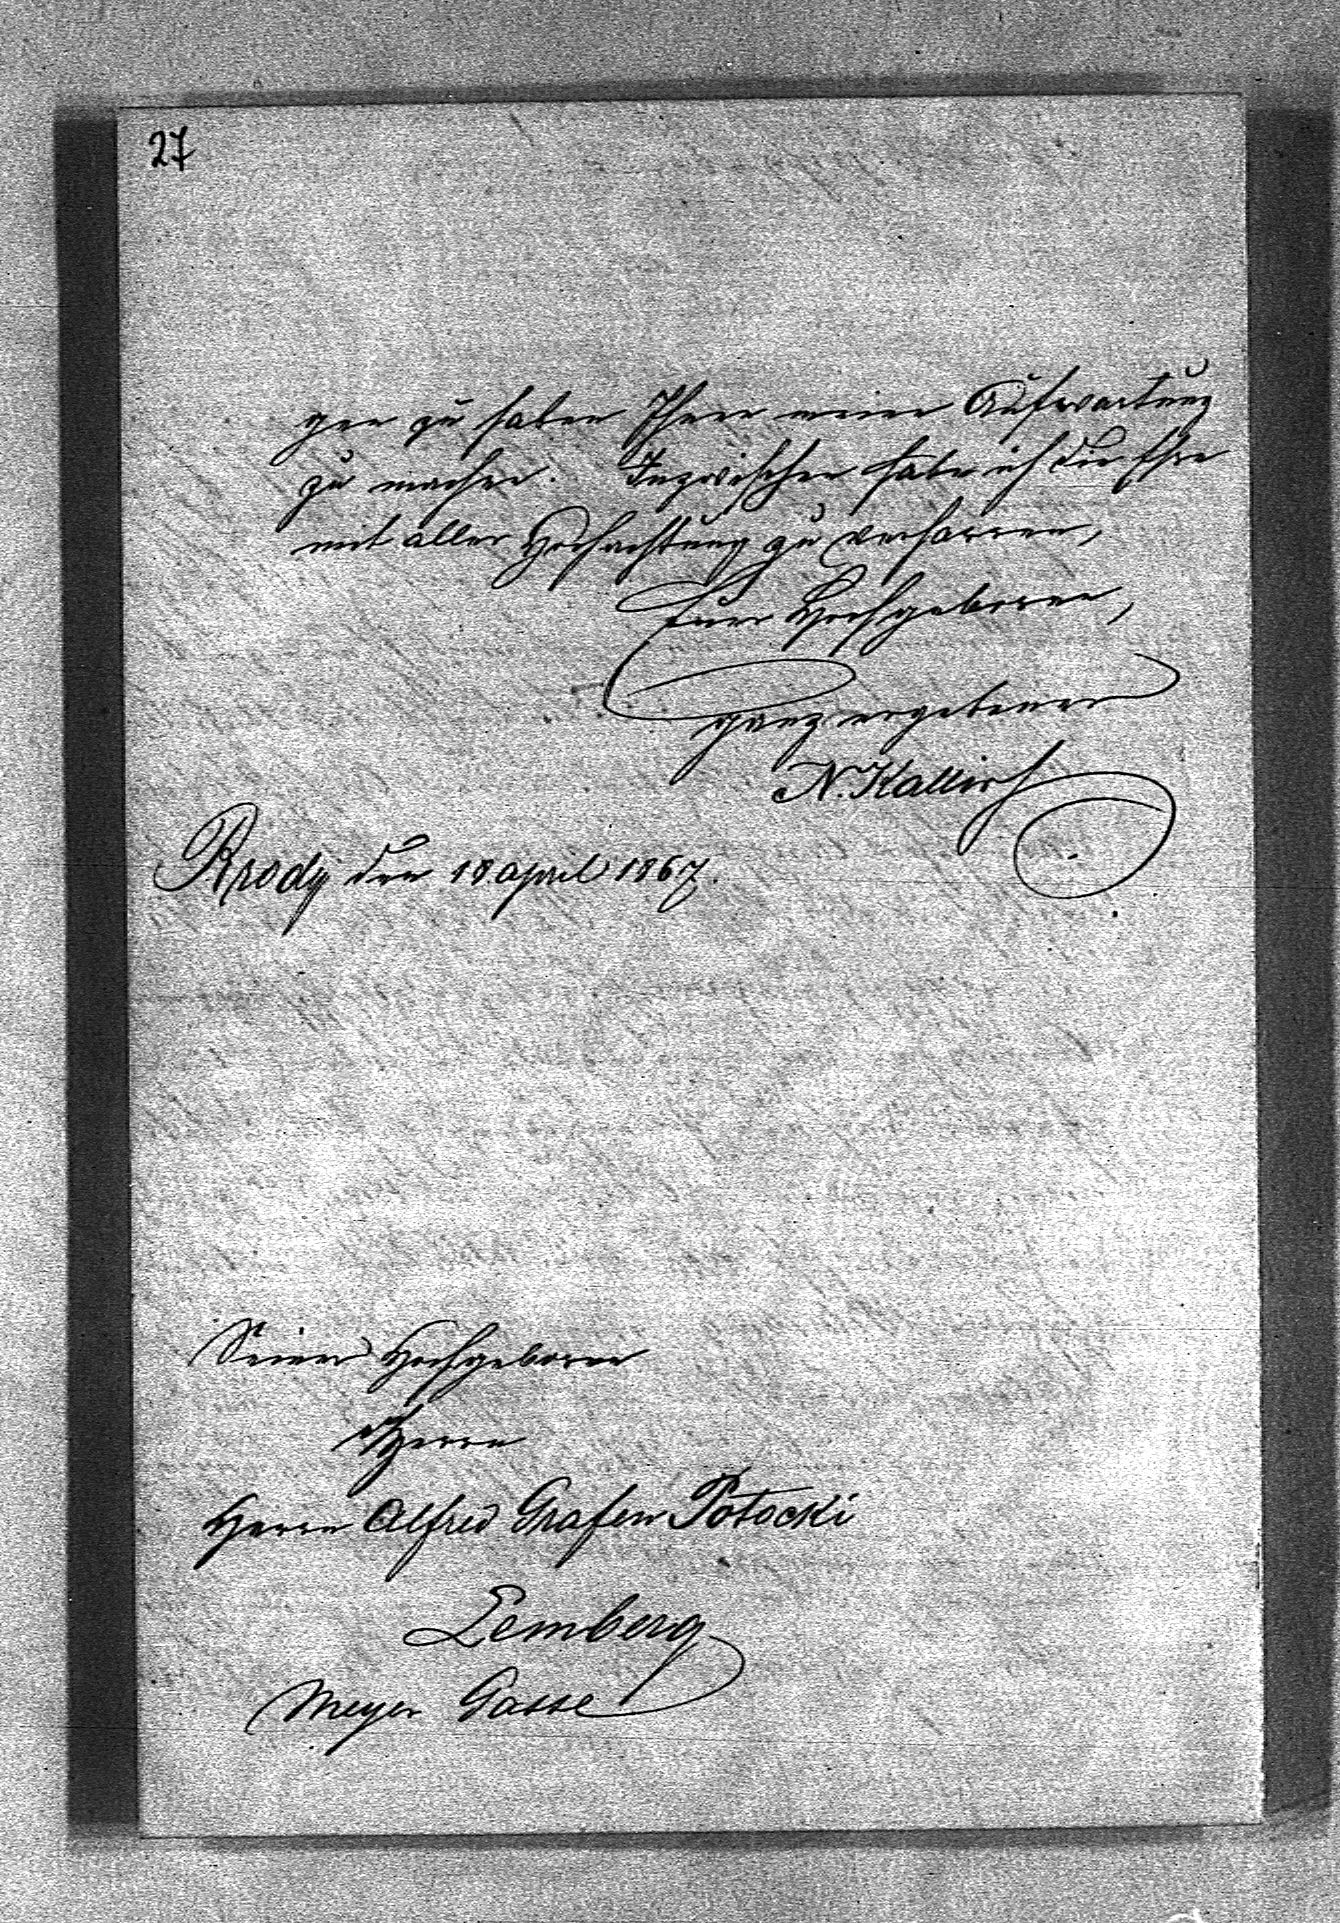 27
gen zu haben Ihnen meine Aufwartung
zu machen. Inzwischen habe ich die Ehre
mit aller Hochachtung zu verharren,
Euer Hochgeboren,
ganz ergebener
N. Kallir
Brody den 18 april 1867.
Seiner Hochgeboren
Herrn
Herrn Alfred Grafen Potocki
Lemberg
Meyer Gasse